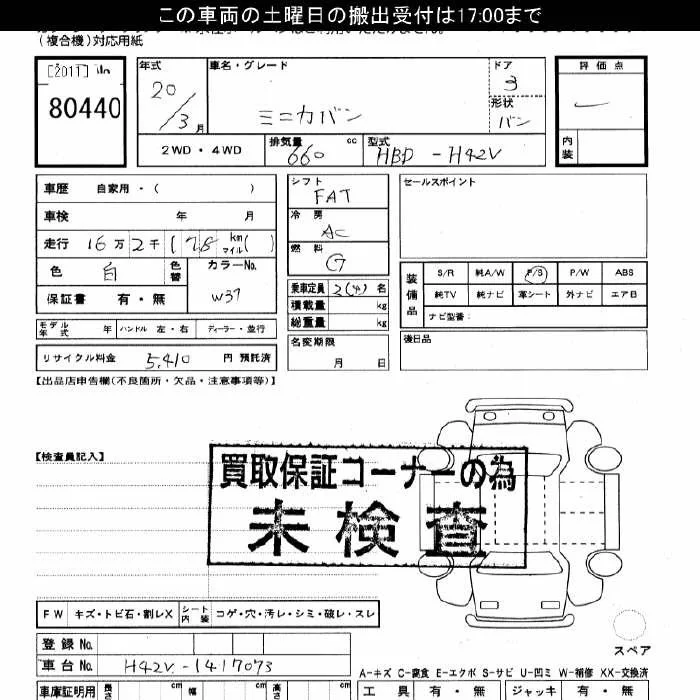 この車両の土曜日の搬出受付は17:00まで
(複合機)対応用紙
[2011]
80440
年式
20/3月
車名・グレード
ミニカバン
ドア
3
形状
バン
評価点
内装
2WD・4WD
排気量
660 cc
型式
HBD-H42V
車歴 自家用・( )
車検 年 月
走行 16万2千(178km(
マイル
色 白 色替
カラーNo.
W37
保証書 有・無
シフト
FAT
冷房
AC
燃料
G
乗車定員 2(4)名
積載量 kg
総重量 kg
セールスポイント
装備品
S/R 純A/W P/S P/W ABS
純TV 純ナビ 革シート 外ナビ エアB
ナビ型番:
モデル年式 年 ハンドル 左・右 ディーラー・並行
名変期限
月 日
後日品
リサイクル料金 5,410 円 預託済
【出品店申告欄(不良箇所・欠品・注意事項等)】
【検査員記入】
買取保証コーナーの為
未検査
FW キズ・トビ石・割レX シート内装 コゲ・穴・汚レ・シミ・破レ・スレ
スペア
登録No.
車台No. H42V-1417073
A-キズ C-腐食 E-エクボ S-サビ U-凹ミ W-補修 XX-交換済
車庫証明用 長さ cm 幅 cm 高さ cm
工具 有・無 ジャッキ 有・無